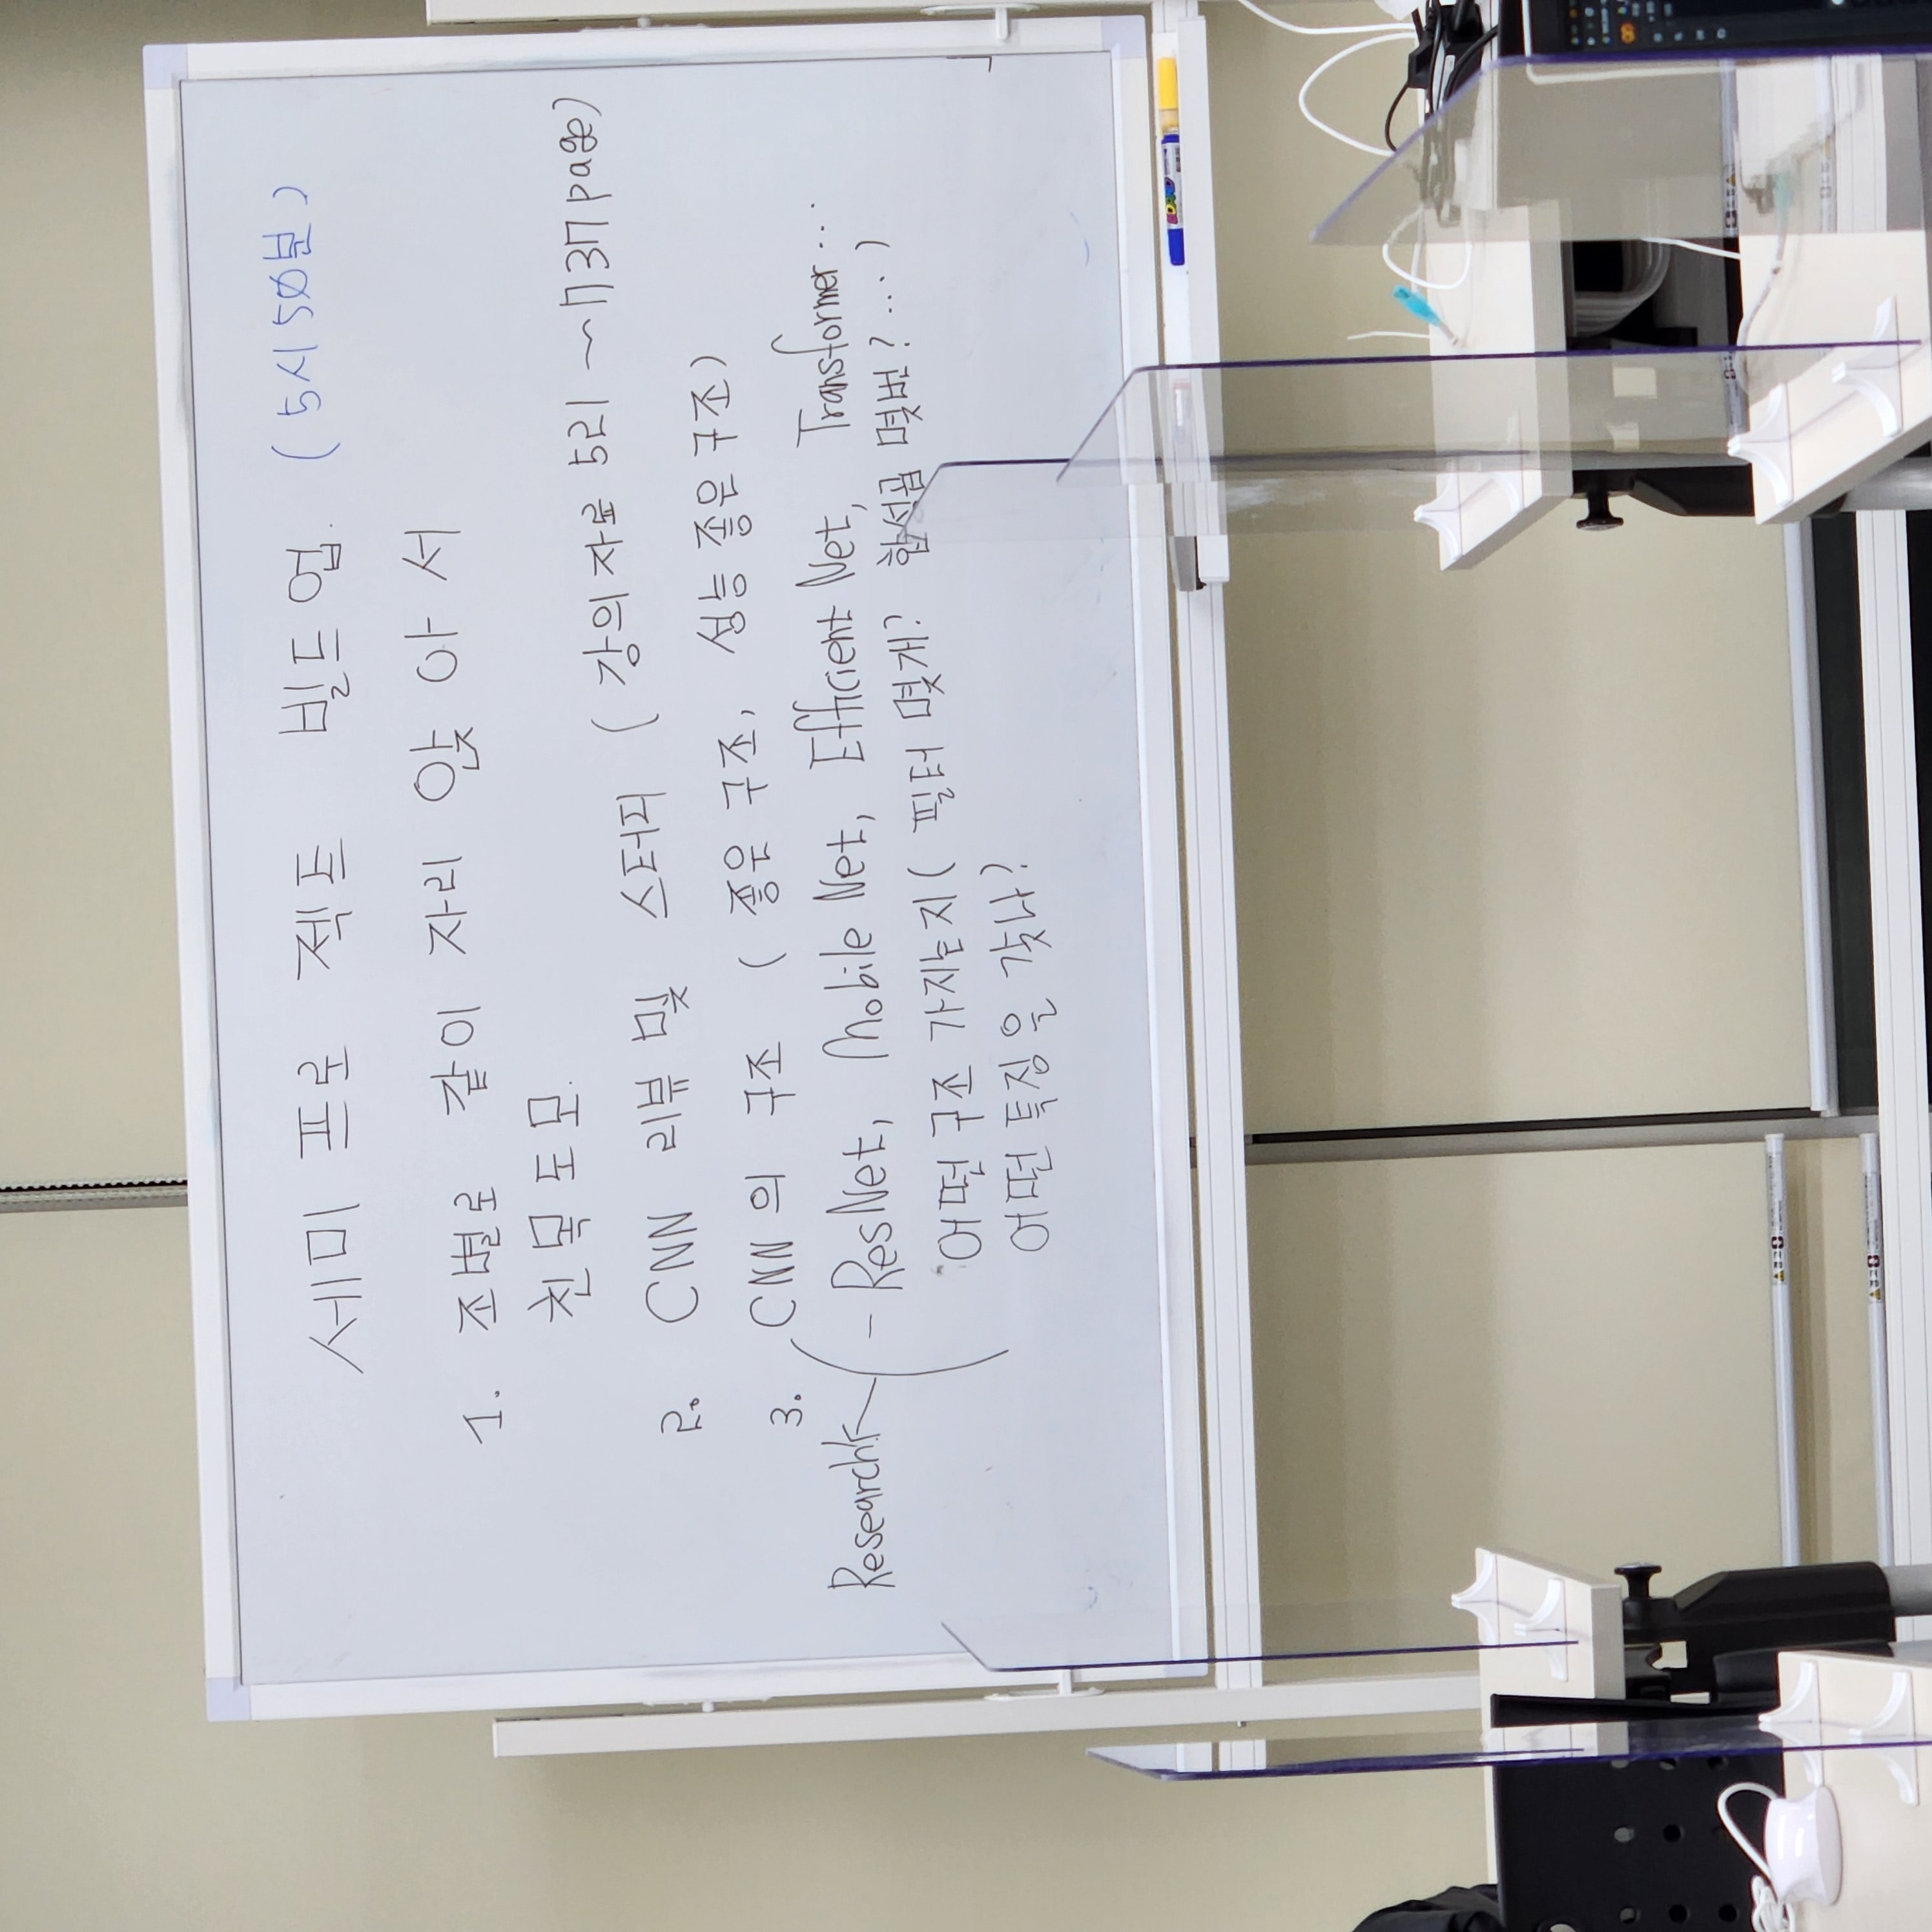 세미 프로젝트 빌드업. (5시 50분)
1. 조별로 같이 자리 앉아서
친목도모.
2. CNN 리뷰 및 스터디 (강의자료 521 ~ 737 page)
3. CNN의 구조 (좋은 구조, 성능 좋은 구조)
- ResNet, Mobile Net, Efficient Net, Transformer...
어떤 구조 가지는지 (필터 몇개? 합성곱 몇번? ...)
어떤 특징을 갖나?